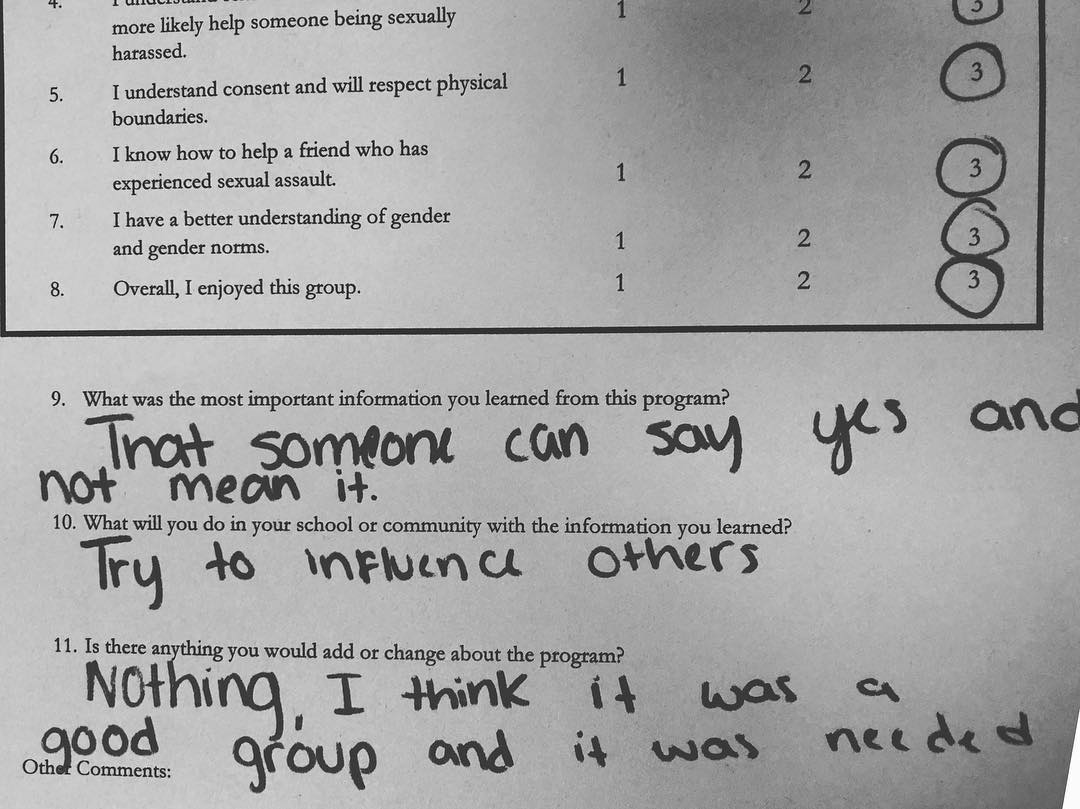 4.
3
1 2
more likely help someone being sexually
harassed.
5. I understand consent and will respect physical 1 2 3
boundaries.
6. I know how to help a friend who has
experienced sexual assault. 1 2 3
7. I have a better understanding of gender
and gender norms. 1 2 3
8. Overall, I enjoyed this group. 1 2 3
9. What was the most important information you learned from this program?
That someone can say yes and
not mean it.
10. What will you do in your school or community with the information you learned?
Try to influence others
11. Is there anything you would add or change about the program?
Nothing, I think it was a
good group and it was needed
Other Comments: